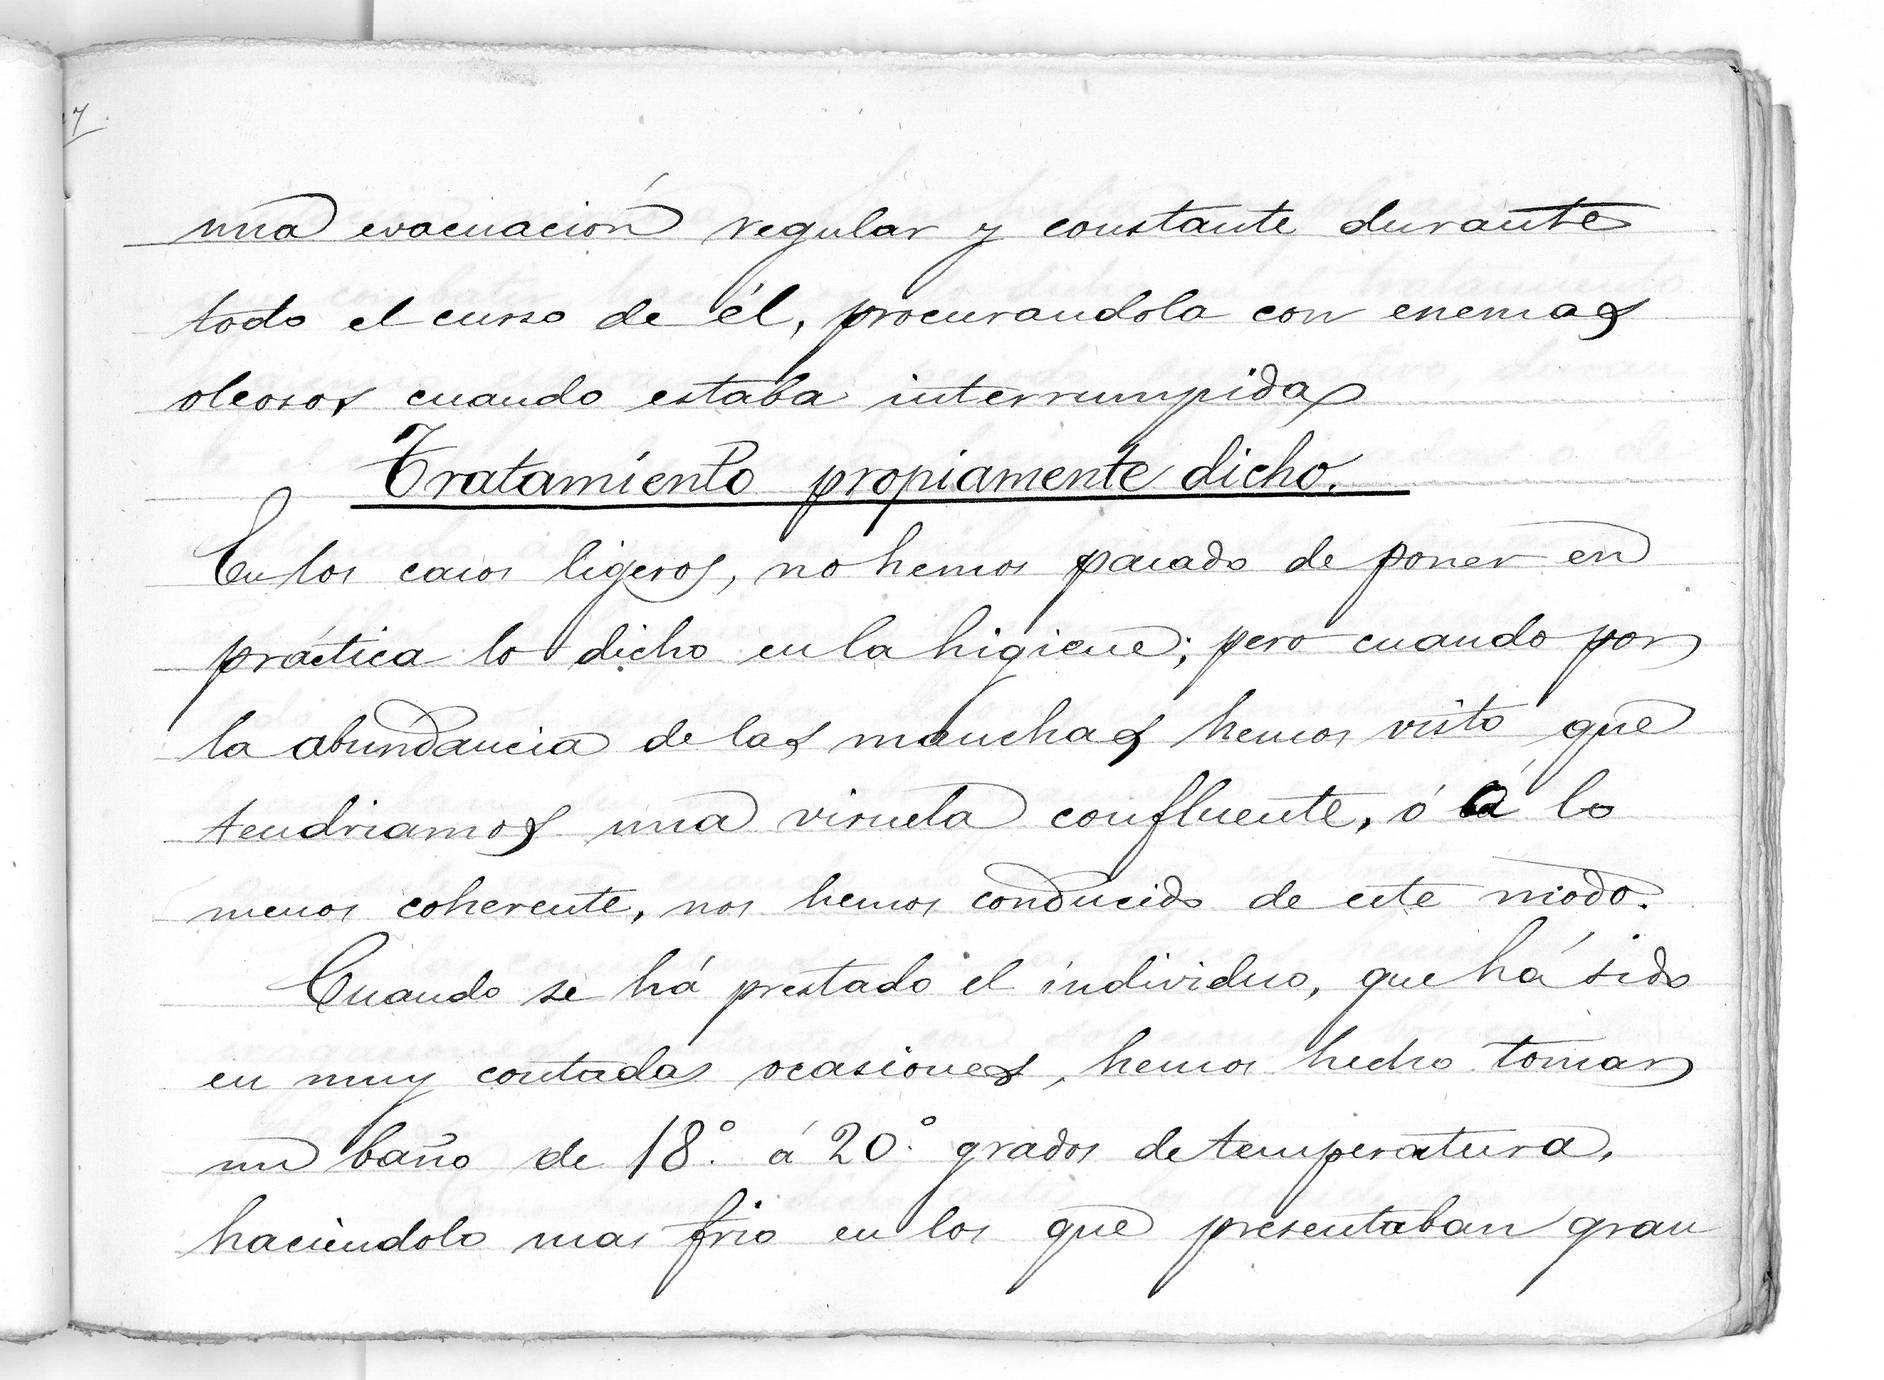 una evacuación regular y constante durante
todo el curso de él, procurandola con enemas
oleosos cuando estaba interrumpida
Tratamiento propiamente dicho.
En los casos ligeros, no hemos pasado de poner en
práctica lo dicho en la higiene; pero cuando por
la abundancia de las manchas hemos visto que
tendriamos una viruela confluente, ó á lo
menos coherente, nos hemos conducido de este modo.
Cuando se há prestado el individuo, que há sido
en muy contadas ocasiones, hemos hecho tomar
un baño de 18.° á 20.° grados de temperatura,
haciendolo mas frio en los que presentaban gran